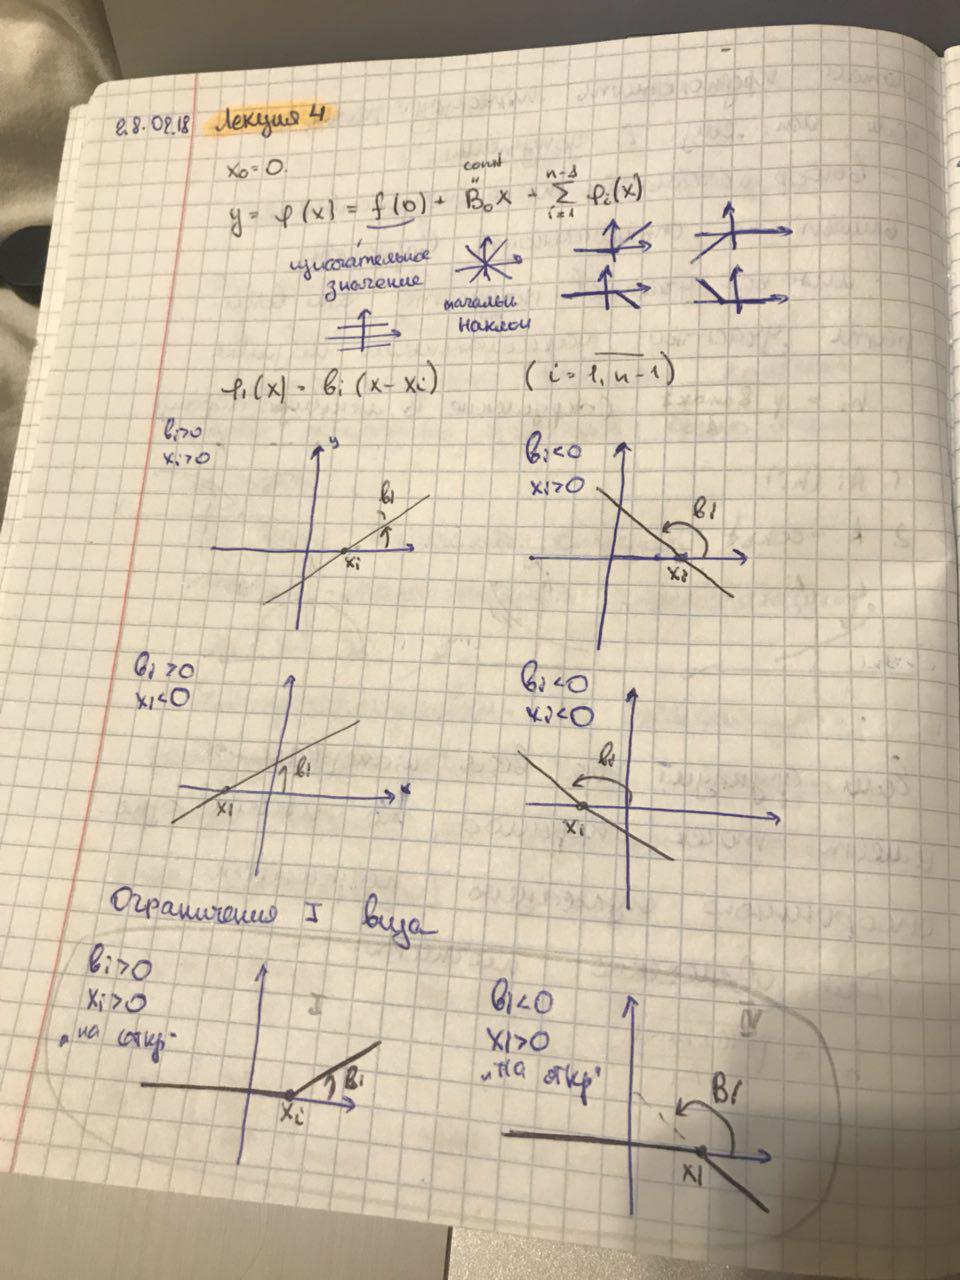 28.02.18 Лекция 4
x₀ = 0.
const
y = φ(x) = f(0) + B₀x + ∑ᵢ₌₁ⁿ⁻¹ φᵢ(x)
значение
начальн
наклон
φᵢ(x) = bᵢ(x - xᵢ) (i = 1, n-1)
bᵢ>0
xᵢ>0
y
bᵢ
xᵢ
bᵢ<0
xᵢ>0
bᵢ
xᵢ
bᵢ>0
xᵢ<0
bᵢ
xᵢ
x
bᵢ<0
xᵢ<0
bᵢ
xᵢ
Ограничения I вида
bᵢ>0
xᵢ>0
„на откр"
I
bᵢ
xᵢ
bᵢ<0
xᵢ>0
„на откр"
IV
Bᵢ
xᵢ